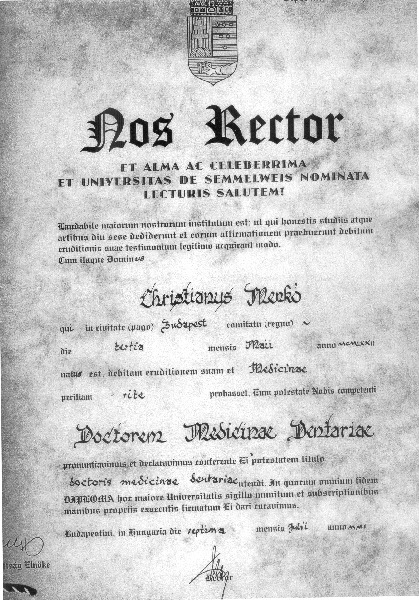 Nos Rector
ET ALMA AC CELEBERRIMA
ET UNIVERSITAS DE SEMMELWEIS NOMINATA
LECTURIS SALUTEM!
Laudabile maiorum nostrorum institutum est, ut qui honestis studiis atque
artibus diu sese dediderunt et eorum affirmationem praebuerunt debitam
eruditionis suae testimonium legitimo acquirant modo.
Cum itaque Dominus
Christianus Menkó
qui in civitate (pago) Budapest comitatu (regno) ~
die tertia mensis Maii anno MCMLXXII
natus est, debitam eruditionem suam et Medicinae
peritiam rite probasset, Cum potestate Nobis competenti
Doctorem Medicinae Dentariae
pronuntiavimus et declaravimus conferente Ei potestatem titulo
doctoris medicinae dentariae utendi. In quorum omnium fidem
DIPLOMA hoc maiore Universitatis sigillo munitum et subscriptionibus
manibus propriis exaratis firmatum Ei dari curavimus.
Budapestini, in Hungaria die septima mensis anno
Elnöke
Rector